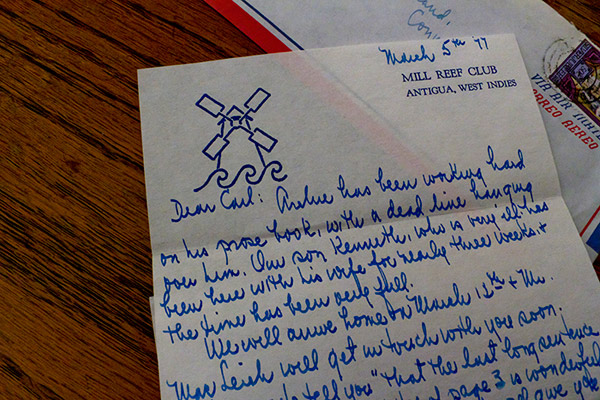 and,
Conn
March 5th 77
MILL REEF CLUB
ANTIGUA, WEST INDIES
VIA AIR MAIL
CORREO AEREO
Dear Carl: Archie has been working hard
on his prose book, with a dead line hanging
over him. Our son Kenneth, who is very ill has
been here with his wife for nearly three weeks. +
the time has been very full.
We will arrive home on March 12th + Mr.
MacLeish will get in touch with you soon.
tell you "that the last long sentence
page 3 is wonderful